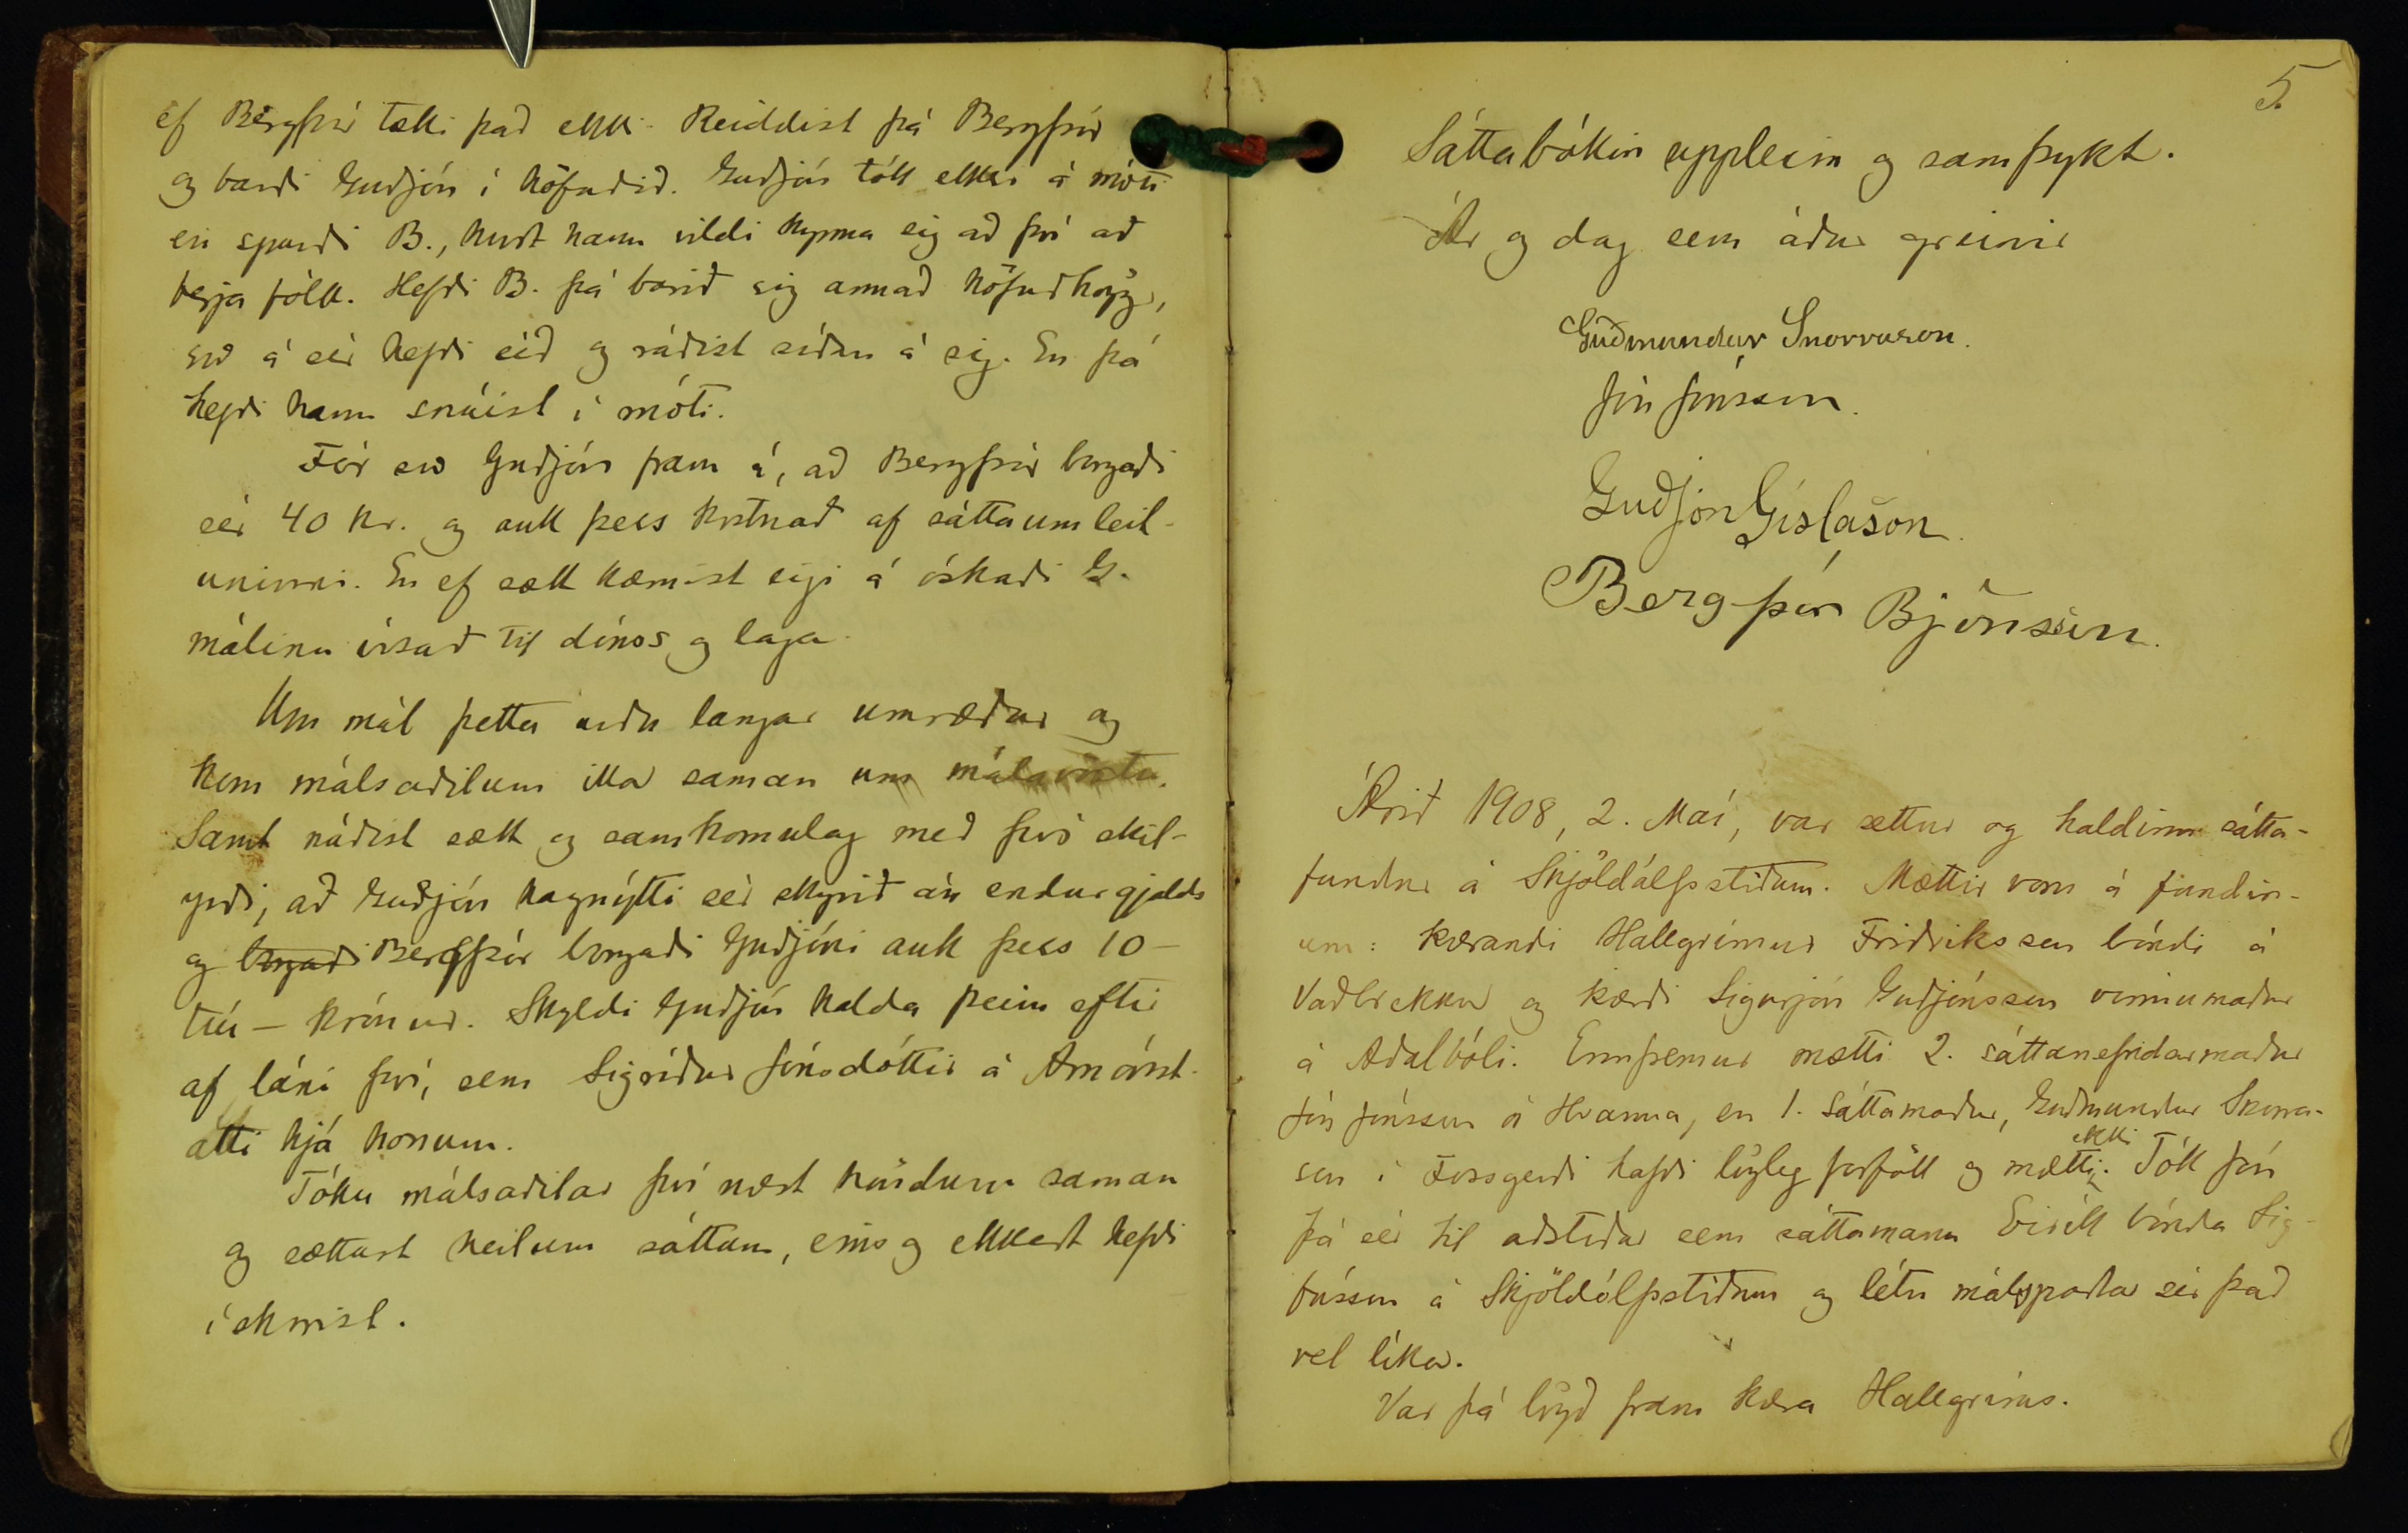 ef Bergþór tæki það ekki. Reiddist þá Bergþór
og barði Guðjón í höfuðið. Guðjón tók ekki á móti
en spurði B., hvort hann vildi kynna sig að því að
berja fólk. Hefði B. þá barið sig annað höfuðhögg,
svo á sér hefði séð og ráðist síðan á sig. En þá
hefði hann snúist í móti.
Fór svo Guðjón fram á, að Bergþór borgaði
sér 40 kr. og auk þess kostnað af sáttaumleit-
uninni. En ef sætt kæmist eigi á óskaði G.
málinu vísað til dóms og laga.
Um mál þetta urðu langar umræður og
kom málsaðilum illa saman um málavöxtu.
Samt náðist sætt og samkomulag með því skil-
yrði, að Guðjón hagnýtti sér skyrið án endurgjalds
og borgaði Bergþór borgaði Guðjóni auk þess 10 —
tíu — krónur. Skyldi Guðjón halda þeim eftir
af láni því, sem Sigríður Jónsdóttir á Arnórsst.
átti hjá honum.
Tóku málsaðilar því næst höndum saman
og sættust heilum sáttum, eins og ekkert hefði
í skorist.
5.
Sáttabókin upplesin og samþykt.
Ár og dag sem áður greinir
Guðmundur Snorrason.
Jón Jónsson.
Guðjón Gíslason.
Bergþór Björnsson.
Árið 1908, 2. Maí, var settur og haldinn sátta-
fundur á Skjöldólfsstöðum. Mættir voru á fundin-
um: kærandi Hallgrímur Friðriksson bóndi á
Vaðbrekku og kærði Sigurjón Guðjónsson vinnumaður
á Aðalbóli. Ennfremur mætti 2. sáttanefndarmaður
Jón Jónsson á Hvanná, en 1. sáttamaður, Guðmundur Snorra-
son í Fossgerði hafði lögleg forföll og mætti ekki. Tók Jón
þá sér til aðstoðar sem sáttamann Eirík bónda Sig-
fússon á Skjöldólfsstöðum og létu málsparta sér það
vel líka.
Var þá lögð fram kæra Hallgríms.